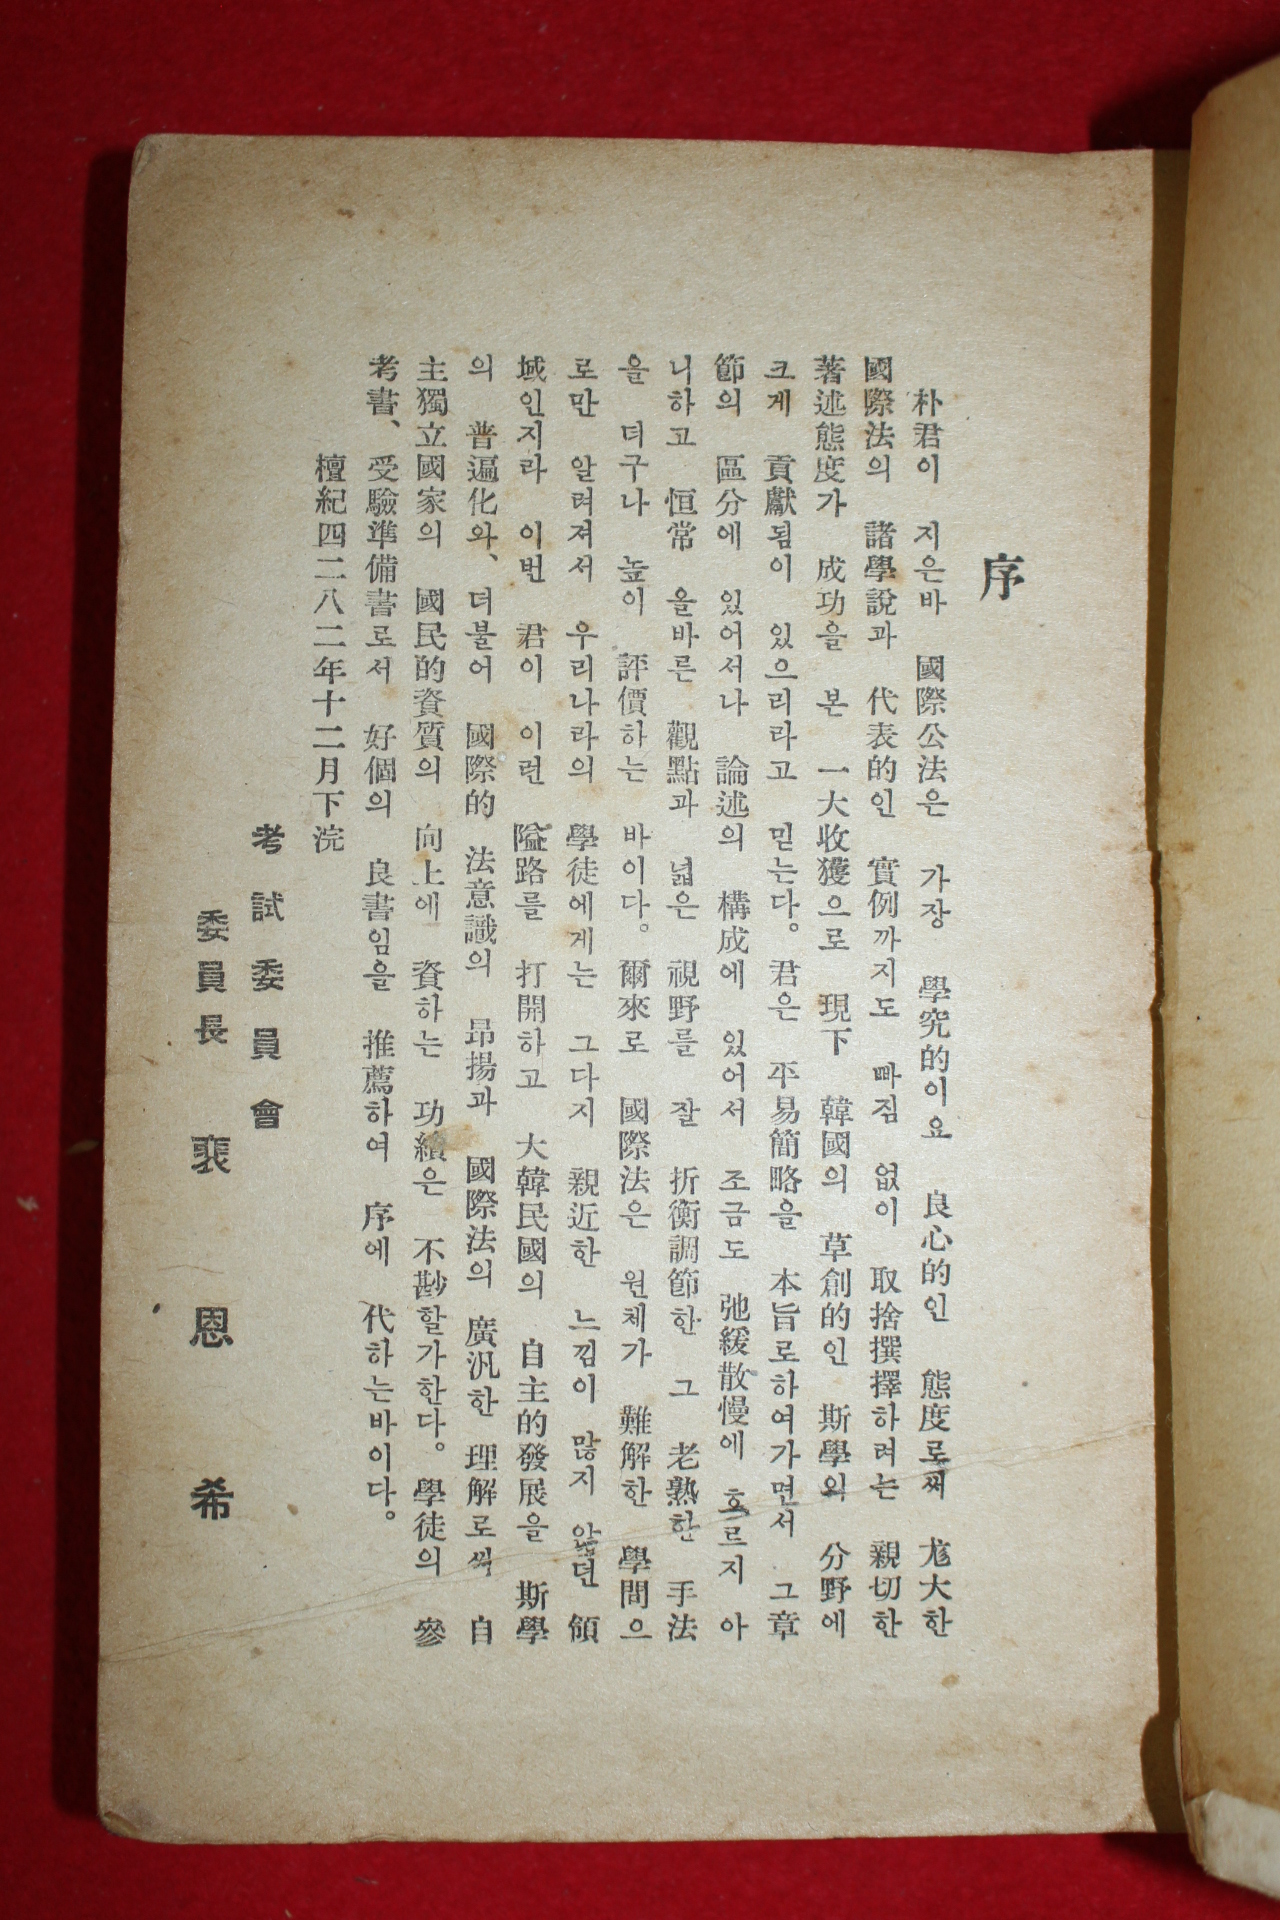 序
朴君이 지은바 國際公法은 가장 學究的이요 良心的인 態度로써 尨大한
國際法의 諸學說과 代表的인 實例까지도 빠짐 없이 取捨撰擇하려는 親切한
著述態度가 成功을 본 一大收獲으로 現下 韓國의 草創的인 斯學의 分野에
크게 貢獻됨이 있으리라고 믿는다。君은 平易簡略을 本旨로하여가면서 그章
節의 區分에 있어서나 論述의 構成에 있어서 조금도 弛緩散慢에 흐르지 아
니하고 恒常 올바른 觀點과 넓은 視野를 잘 折衡調節한 그 老熟한 手法
을 더구나 높이 評價하는 바이다。爾來로 國際法은 원체가 難解한 學間으
로만 알려져서 우리나라의 學徒에게는 그다지 親近한 느낌이 많지 않던 領
域인지라 이번 君이 이런 隘路를 打開하고 大韓民國의 自主的發展을 斯學
의 普遍化와、더불어 國際的 法意識의 昂揚과 國際法의 廣汎한 理解로써 自
主獨立國家의 國民的資質의 向上에 資하는 功績은 不尠할가한다。學徒의 參
考書、受驗準備書로서 好個의 良書임을 推薦하여 序에 代하는바이다。
檀紀四二八二年十二月下浣
考試委員會
委員長 裵恩希